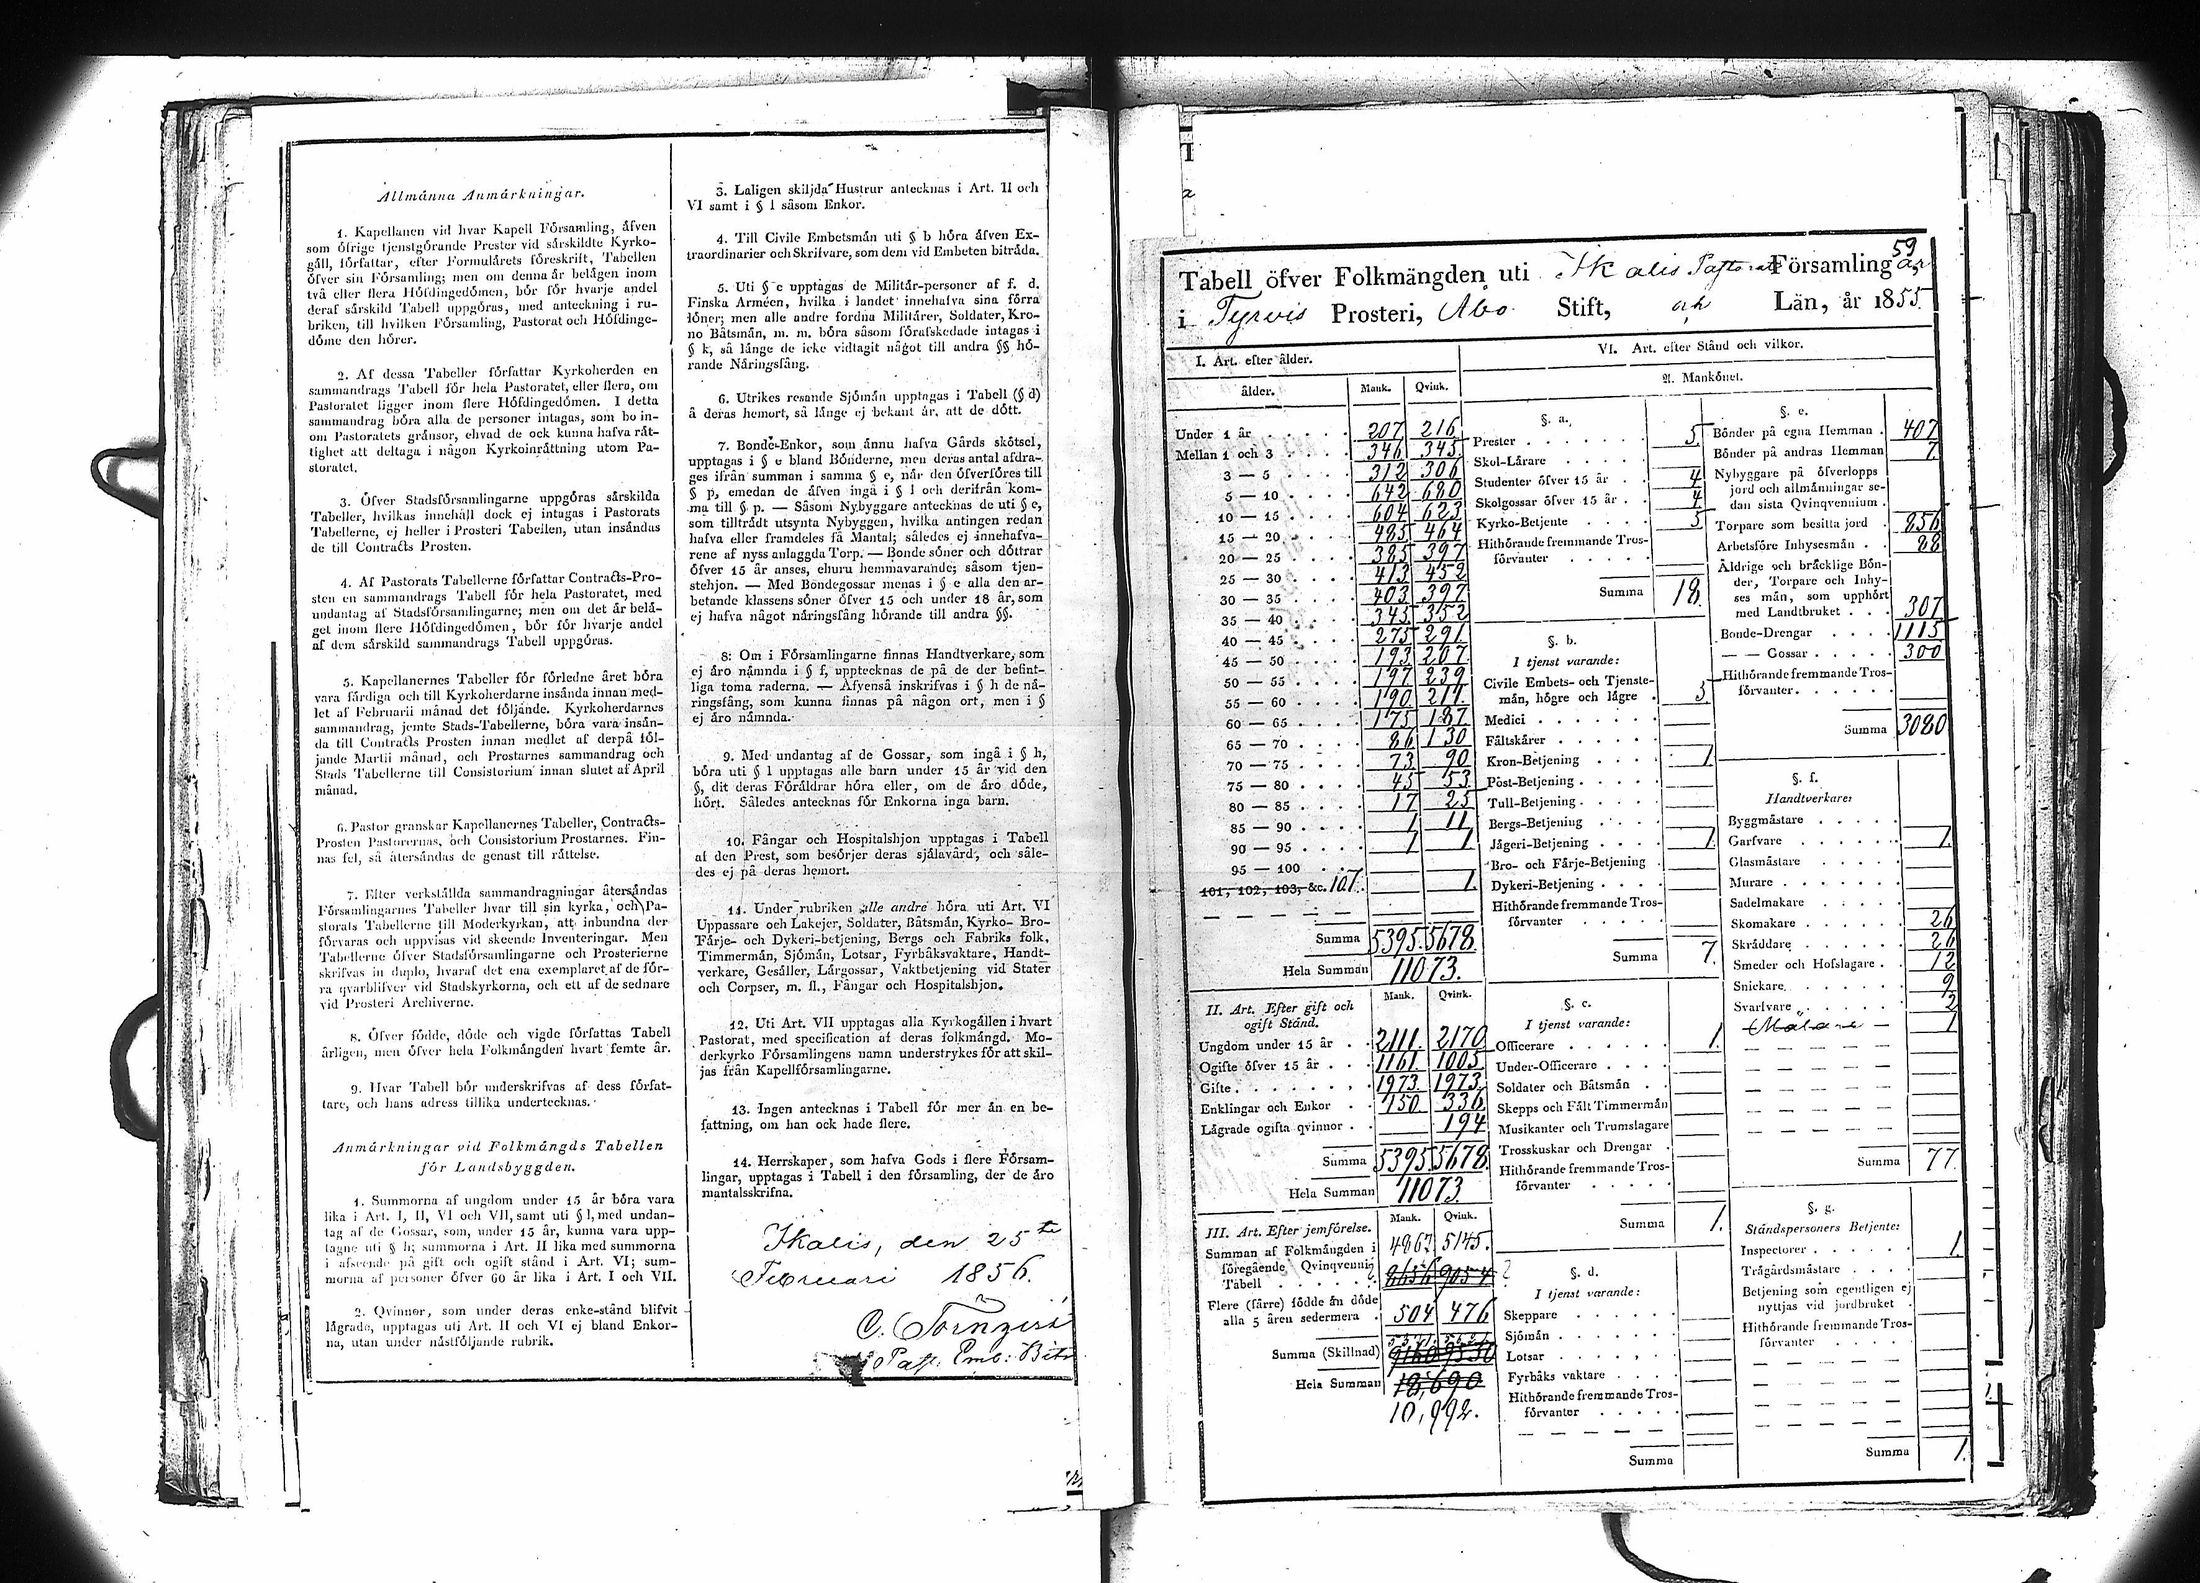 Allmänna Anmärkningar.
1. Kapellanen vid hvar Kapell Församling, äfven
som öfrige tjenstgörande Prester vid särskildte Kyrko-
gäll, författar, efter Formulärets föreskrift, Tabellen
öfver sin Församling; men om denna är belägen inom
två eller flera Höfdingedömen, bör för hvarje andel
deraf särskild Tabell uppgöras, med anteckning i ru-
briken, till hvilken Församling, Pastorat och Höfdinge-
döme den hörer.
2. Af dessa Tabeller författar Kyrkoherden en
sammandrags Tabell för hela Pastoratet, eller flera, om
Pastoratet ligger inom flere Höfdingedömen. I detta
sammandrag böra alla de personer intagas, som bo in-
om Pastoratets gränsor, ehvad de ock kunna hafva rät-
tighet att deltaga i någon Kyrkoinrättning utom Pa-
storatet.
3. Öfver Stadsförsamlingarne uppgöras särskilda
Tabeller, hvilkas innehåll dock ej intages i Pastorats
Tabellerne, ej heller i Prosteri Tabellen, utan insändas
de till Contracts Prosten.
4. Af Pastorats Tabellerne författar Contracts-Pro-
sten en sammandrags Tabell för hela Pastoratet, med
undantag af Stadsförsamlingarne; men om det är belä-
get inom flere Höfdingedömen, bör för hvarje andel
af dem särskild sammandrags Tabell uppgöras.
5. Kapellanernes Tabeller för förledne året böra
vara färdiga och till Kyrkoherdarne insända innan med-
let af Februarii månad det följande. Kyrkoherdarnes
sammandrag, jemte Stads-Tabellerne, böra vara insän-
da till Contracts Prosten innan medlet af derpå föl-
jande Martii månad, och Prostarnes sammandrag och
Stads Tabellerne till Consistorium innan slutet af April
månad.
6. Pastor granskar Kapellanernes Tabeller, Contracts-
Prosten Pastorernas, och Consistorium Prostarnes. Fin-
nas fel, så återsändas de genast till rättelse.
7. Efter verkställda sammandragningar återsändas
Församlingarnes Tabeller hvar till sin kyrka, och Pa-
storats Tabellerne till Moderkyrkan, att inbundna der
förvaras och uppvisas vid skeende Inventeringar. Men
Tabellerne öfver Stadsförsamlingarne och Prosterierne
skrifvas in duplo, hvaraf det ena exemplaret af de för-
ra qvarblifver vid Stadskyrkorna, och ett af de sednare
vid Prosteri Archiverne.
8. Öfver födde, döde och vigde författas Tabell
årligen, men öfver hela Folkmängden hvart femte år.
9. Hvar Tabell bör underskrifvas af dess förfat-
tare, och hans adress tillika undertecknas.
Anmärkningar vid Folkmängds Tabellen
för Landsbyggden.
1. Summorna af ungdom under 15 år böra vara
lika i Art. I, II, VI och VII, samt uti § l, med undan-
tag af de Gossar, som, under 15 år, kunna vara upp-
tagne uti § h; summorna i Art. II lika med summorna
i afseende på gift och ogift stånd i Art. VI; sum-
morna af personer öfver 60 år lika i Art. I och VII.
2. Qvinnor, som under deras enke-stånd blifvit
lägrade, upptages uti Art. II och VI ej bland Enkor-
na, utan under nästföljande rubrik.
3. Laligen skiljda Hustrur antecknas i Art. II och
VI samt i § l såsom Enkor.
4. Till Civile Embetsmän uti § b höra äfven Ex-
traordinarier och Skrifvare, som dem vid Embeten biträda.
5. Uti § c upptages de Militär-personer af f. d.
Finska Arméen, hvilka i landet innehafva sina förra
löner; men alle andre fordna Militärer, Soldater, Kro-
no Båtsmän, m. m. böra såsom förafskedade intagas i
§ k, så länge de icke vidtagit något till andra §§ hö-
rande Näringsfång.
6. Utrikes resande Sjömän upptages i Tabell (§ d)
å deras hemort, så länge ej bekant är, att de dött.
7. Bonde-Enkor, som ännu hafva Gårds skötsel,
upptagas i § e bland Bönderne, men deras antal afdra-
ges ifrån summan i samma § e, når den öfverföres till
§ p, emedan de äfven ingå i § l och derifrån kom-
ma till § p. — Såsom Nybyggare antecknas de uti § e,
som tillträdt utsynta Nybyggen, hvilka antingen redan
hafva eller framdeles få Mantal; således ej innehafva-
rene af nyss anlaggda Torp. — Bonde söner och döttrar
öfver 15 år anses, ehuru hemmavarande; såsom tjen-
stehjon. — Med Bondegossar menas i § e alla den ar-
betande klassens söner öfver 15 och under 18 år, som
ej hafva något näringsfång hörande till andra §§.
8: Om i Församlingarne finnas Handtverkare, som
ej äro nämnda i § f, upptecknas de på de der befint-
liga toma raderna. — Äfvenså inskrifvas i § h de nä-
ringsfång, som kunna finnas på någon ort, men i §
ej äro nämnda.
9. Med undantag af de Gossar, som ingå i § h,
böra uti § l upptagas alle barn under 15 år vid den
§, dit deras Föräldrar höra eller, om de äro döde,
hört. Således antecknas för Enkorna inga barn.
10. Fångar och Hospitalshjon upptages i Tabell
af den Prest, som besörjer deras själavård, och såle-
des ej på deras hemort.
11. Under rubriken alle andre höra uti Art. VI
Uppassare och Lakejer, Soldater, Båtsmän, Kyrko- Bro-
Färje- och Dykeri-betjening, Bergs och Fabriks folk,
Timmermän, Sjömän, Lotsar, Fyrbåksvaktare, Handt-
verkare, Gesäller, Lärgossar, Vaktbetjening vid Stater
och Corpser, m. fl., Fångar och Hospitalshjon.
12. Uti Art. VII upptages alla Kyrkogällen i hvart
Pastorat, med specification af deras folkmängd. Mo-
derkyrko Församlingens namn understrykes för att skil-
jas från Kapellförsamlingarne.
13. Ingen antecknas i Tabell för mer än en be-
fattning, om han ock hade flere.
14. Herrskaper, som hafva Gods i flere Försam-
lingar, upptages i Tabell i den församling, der de äro
mantalsskrifna.
Ikalis, den 25te
Februari 1856.
59
Tabell öfver Folkmängden uti Ikalis Pastorats Församlingar
i Tyrvis Prosteri, Åbo Stift, och Län, år 1855.
I. Art. efter ålder.
ålder. Mank. Qvink.
Under 1 år 207 216
Mellan 1 och 3 346 345
3 — 5 312 306
5 — 10 642 680
10 — 15 604 623
15 — 20 485 464
20 — 25 385 397
25 — 30 413 452
30 — 35 403 397
35 — 40 345 352
40 — 45 275 291
45 — 50 193 207
50 — 55 197 239
55 — 60 190 211
60 — 65 175 187
65 — 70 86 130
70 — 75 73 90
75 — 80 45 53
80 — 85 17 25
85 — 90 1 11
90 — 95 1 1
95 — 100
101, 102, 103, &c. 107. 1.
Summa 5395. 5678.
Hela Summan 11073.
II. Art. Efter gift och
ogift Stånd. Mank. Qvink.
Ungdom under 15 år 2111. 2170
Ogifte öfver 15 år 1161 1005
Gifte 1973. 1973
Enklingar och Enkor 150 336
Lägrade ogifta qvinnor 194
Summa 5395. 5678.
Hela Summan 11073.
III. Art. Efter jemförelse. Mank. Qvink.
Summan af Folkmängden i 4867. 5145.
föregående Qvinqvennii
Tabell 8656 9054
Flere (färre) födde än döde
alla 5 åren sedermera 504 476
Summa (Skillnad) 9160 9530
Hela Summan 18,690
10,992.
VI. Art. efter Stånd och vilkor.
A. Mankönet.
§. a.
Prester 5
Skol-Lärare
Studenter öfver 15 år 4
Skolgossar öfver 15 år 4
Kyrko-Betjente 5
Hithörande fremmande Tros-
förvanter
Summa 18.
§. b.
I tjenst varande:
Civile Embets- och Tjenste-
män, högre och lägre
Medici
Fältskärer
Kron-Betjening 1
Post-Betjening
Tull-Betjening
Bergs-Betjening
Jägeri-Betjening 1
Bro- och Färje-Betjening
Dykeri-Betjening
Hithörande fremmande Tros-
förvanter
Summa 7.
§. c.
I tjenst varande:
Officerare 1.
Under-Officerare
Soldater och Båtsmän
Skepps och Fält Timmermän
Musikanter och Trumslagare
Trosskuskar och Drengar
Hithörande fremmande Tros-
förvanter
Summa 1.
§. d.
I tjenst varande:
Skeppare
Sjömän
Lotsar
Fyrbåks vaktare
Hithörande fremmande Tros-
förvanter
Summa
§. e.
Bönder på egna Hemman 407
Bönder på andras Hemman 7.
Nybyggare på öfverlopps
jord och allmänningar se-
dan sista Qvinqvennium
Torpare som besitta jord 856
Arbetsföre Inhysesmän 88
Åldrige och bräcklige Bön-
der, Torpare och Inhy-
ses män, som upphört
med Landtbruket 307
Bonde-Drengar 1115
— — Gossar 300
Hithörande fremmande Tros-
förvanter
Summa 3080
§. f.
Handtverkare:
Byggmästare
Garfvare 1.
Glasmästare
Murare
Sadelmakare
Skomakare 26
Skräddare 26
Smeder och Hofslagare 12
Snickare 9
Svarfvare 2
Målare 1
Summa 77.
§. g.
Ståndspersoners Betjente:
Inspectorer 1.
Trägårdsmästare
Betjening som egentligen ej
nyttjas vid jordbruket
Hithörande fremmande Tros-
förvanter
Summa 1.